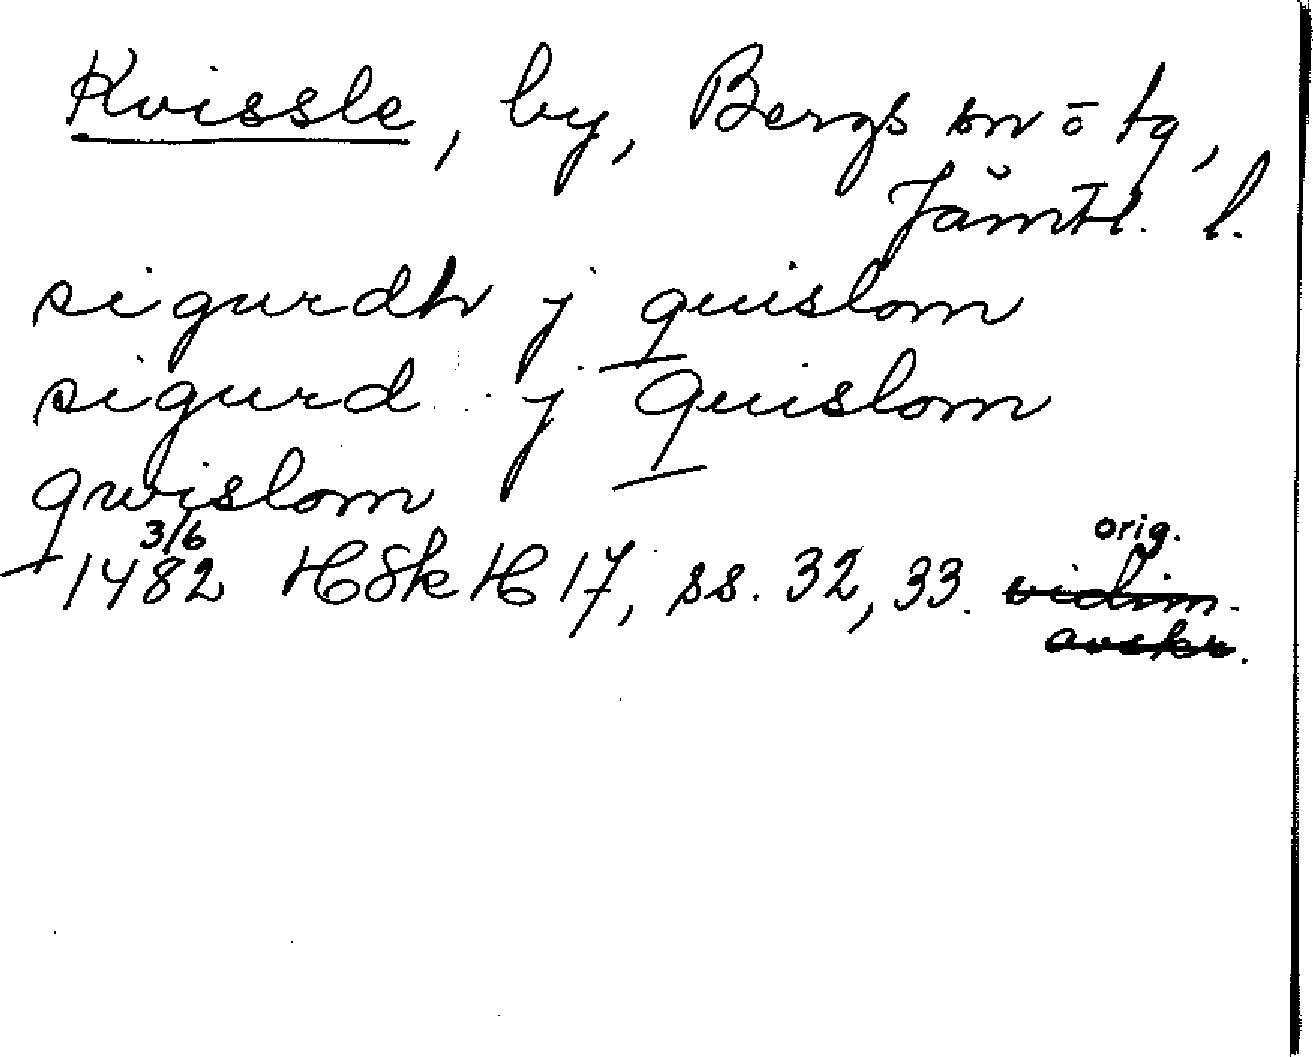 Kvissle, by, Bergs sn o tg,
Jämtl. l.
sigurdh j quislom
sigurd j Quislom
qwislom
3/6 orig.
1482 HSkH 17, ss. 32, 33. vidim.
avskr.